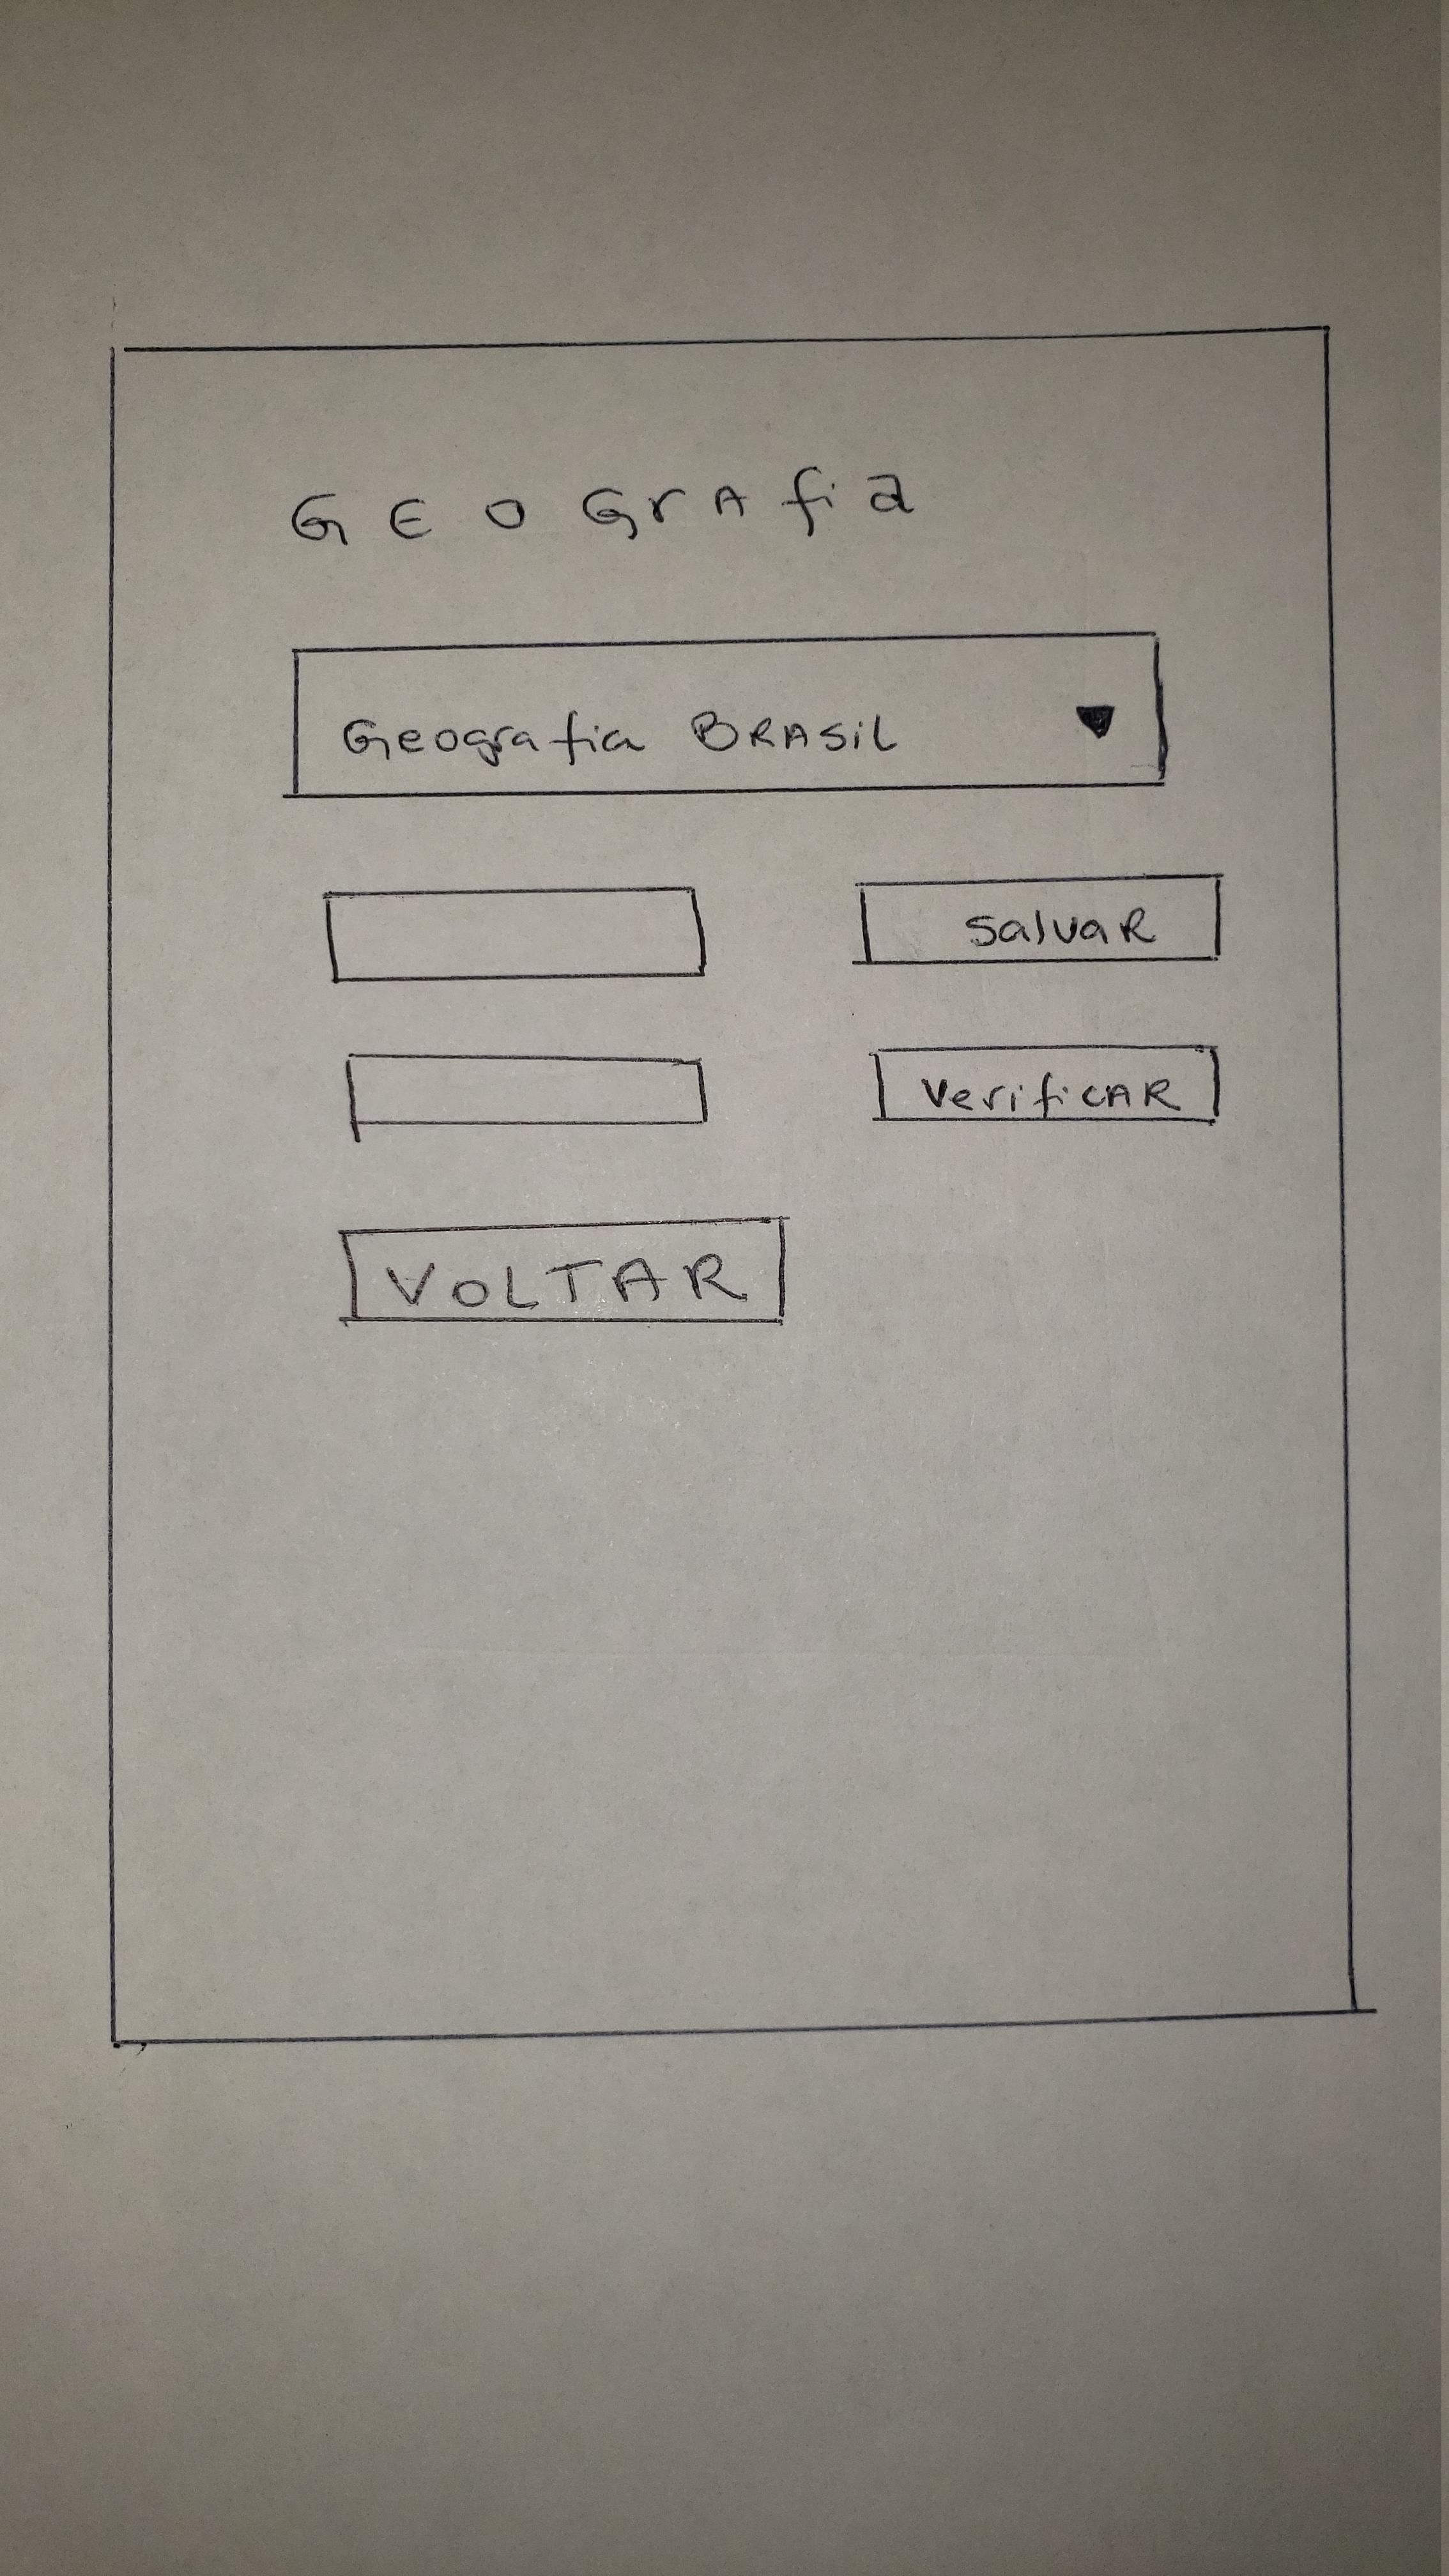 GEOGrAfia
Geografia BRASiL
SalvaR
VerificAR
VOLTAR